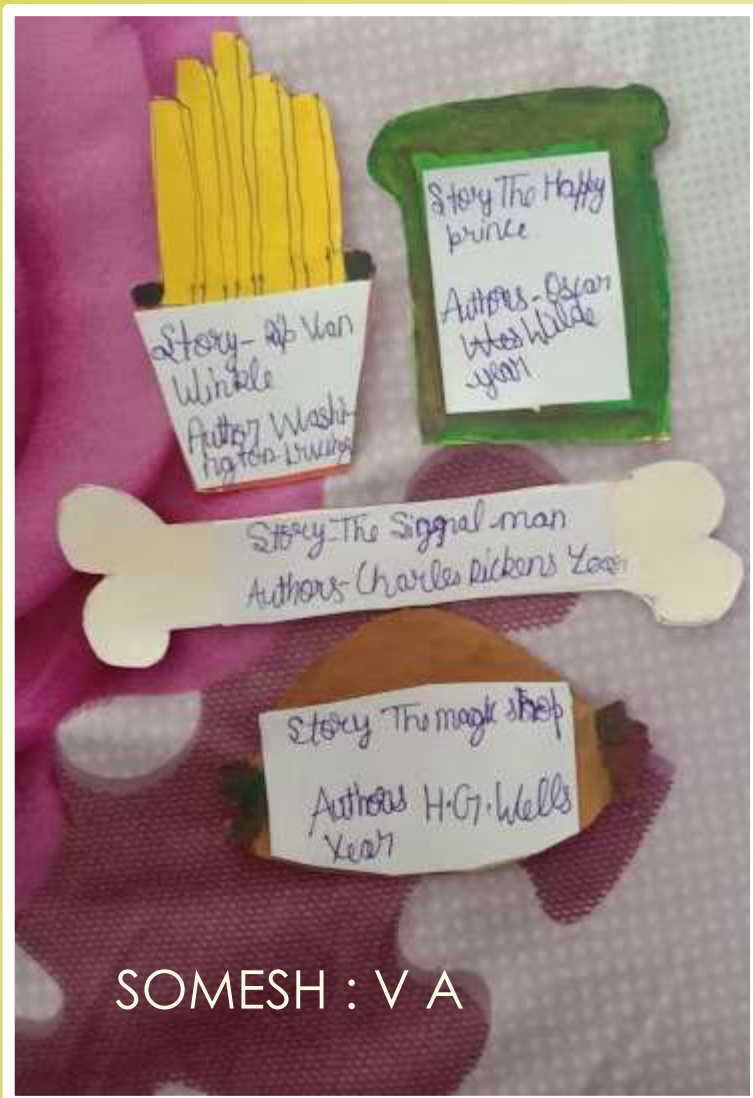 Story- Rip Van
Winkle
Author Washi-
ngton Irving
Story The Happy
prince
Authors-Oscar
Wilde
year
Story-The Siggnal man
Authors-Charles Dickens Year
Story The magic shop
Authors H.G.Wells
Year
SOMESH : V A